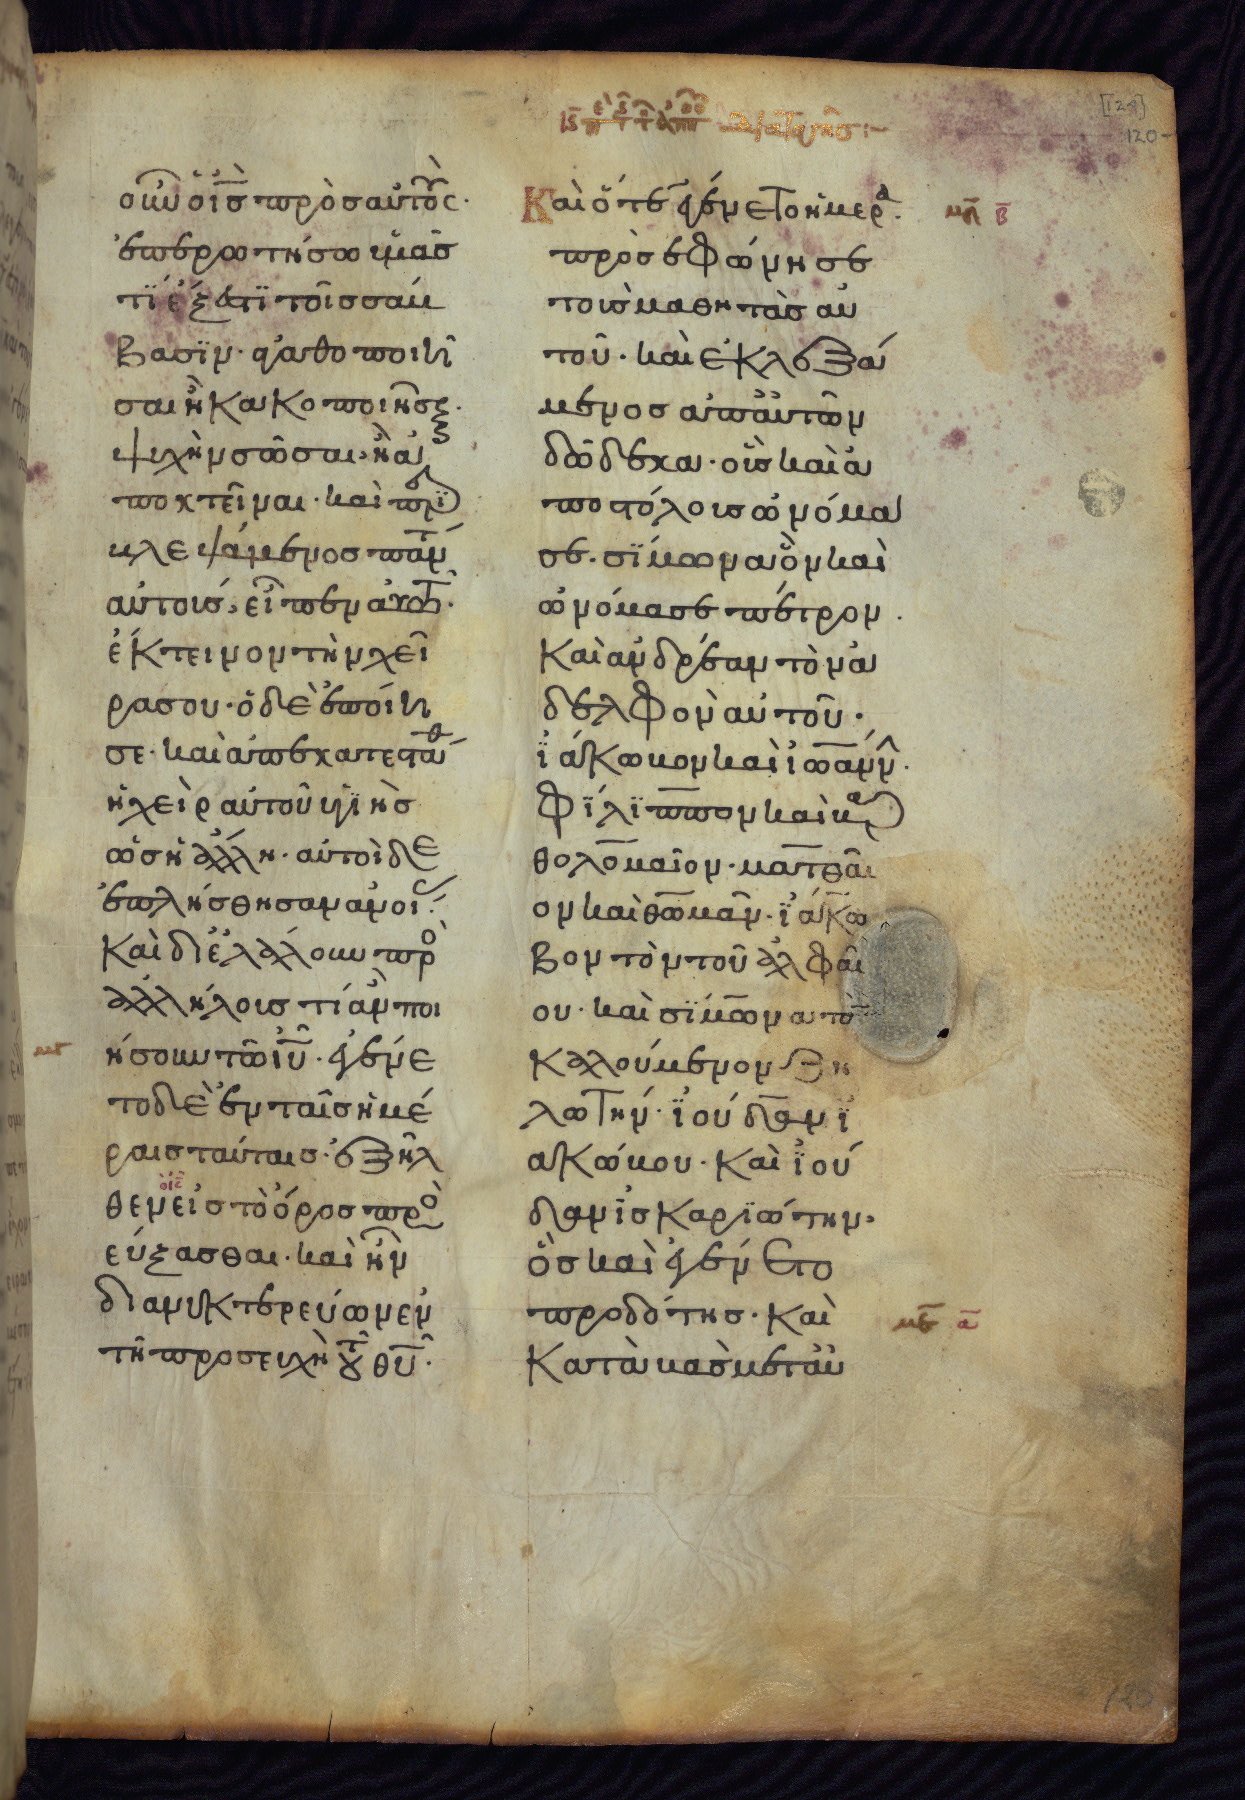 οὖν ὁ ἰς̅ πρὸς αὐτούς·
ἐπερωτήσω ὑμᾶς
τί ἔξεστι τοῖς σάμ
βασϊν· ἀγαθοποιῆ
σαι ἢ κακοποιῆσαι·
ψυχὴν σῶσαι· ἢ ἀ
ποκτεῖναι· καὶ περι
βλεψάμενος πάντ
αὐτοὺς, εἶπεν αὐτῶ·
ἔκτεινον τὴν χεῖ
ρα σου· ὁ δὲ ἐποίη
σε· καὶ ἀπεκατεστάθ
ἡ χεὶρ αὐτοῦ ὑγϊὴς
ὡς ἡ ἄλλη· αὐτοὶ δὲ
ἐπλήσθησαν ἀνοίας·
καὶ διελάλουν πρὸ
ἀλλήλους τί ἂν ποι
ήσουν τῶ ἰυ̅· ἐγένε
το δὲ ἐν ταῖς ἡμέ
ραις ταύταις· ἐξῆλ
θεν εἰς τὸ ὄρος προ
εύξασθαι· καὶ ἦν
διανυκτερεύων ἐν
τῆ προσευχὴ τοῦ θυ̅·
Καὶ ὅτε ἐγένετο ἡμέρα·
προσεφώνησε
τοὺς μαθητὰς αὐ
τοῦ· καὶ ἐκλεξά
μενος ἀπ' αὐτῶν
δώδεκα· οὓς καὶ ἀ
ποστόλους ὠνόμα
σε· σίμωνα ὃν καὶ
ὠνόμασε πέτρον·
Καὶ ἀνδρέαν τὸν ἀ
δελφὸν αὐτοῦ·
ϊάκωβον καὶ ϊωάννην·
Φίλιππον καὶ βαρ
θολομαῖον· ματθαῖ
ον καὶ θωμᾶν· ϊάκω
βον τὸν τοῦ ἀλφαί
ου· καὶ σίμωνα τὸν
καλούμενον ζη
λωτήν· ϊούδαν ϊ
ακώβου· Καὶ ϊού
δαν ϊσκαρϊώτην·
ὃς καὶ ἐγένετο
προδότης· Καὶ
καταβὰς μετ' αὐ
120